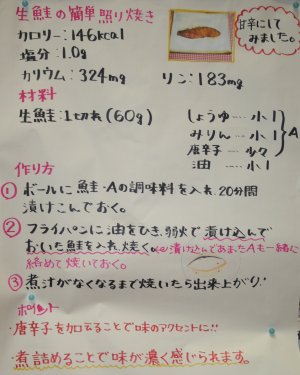 生鮭の簡単照り焼き
カロリー:146kcal
塩分:1.0g
カリウム:324mg
リン:183mg
甘辛にして
みました。
材料
生鮭:1切れ(60g)
しょうゆ……小1
みりん…小1
唐辛子……少々
A
油……小1
作り方
① ボールに鮭・Aの調味料を入れ、20分間
漬けこんでおく。
② フライパンに油をひき、弱火で漬け込んで
おいた鮭を入れ焼く。(※漬け込んであまったAも一緒に
絡めて焼いておく。
③ 煮汁がなくなるまで焼いたら出来上がり!
ポイント
・唐辛子を加えることで味のアクセントに!!
・煮詰めることで味が濃く感じられます。